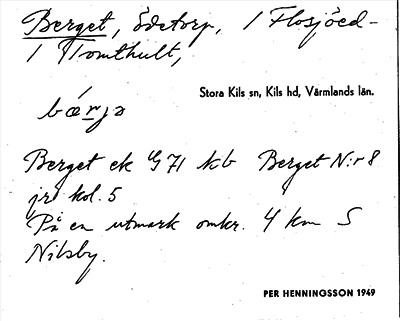 Berget, ödetorp, 1 Flosjöed-
1 Tomthult,
Stora Kils sn, Kils hd, Värmlands län.
bærjə
Berget ek G 71 kb Berget N:r 8
jr kol. 5
På en utmark omkr. 4 km S
Nilsby.
PER HENNINGSSON 1949